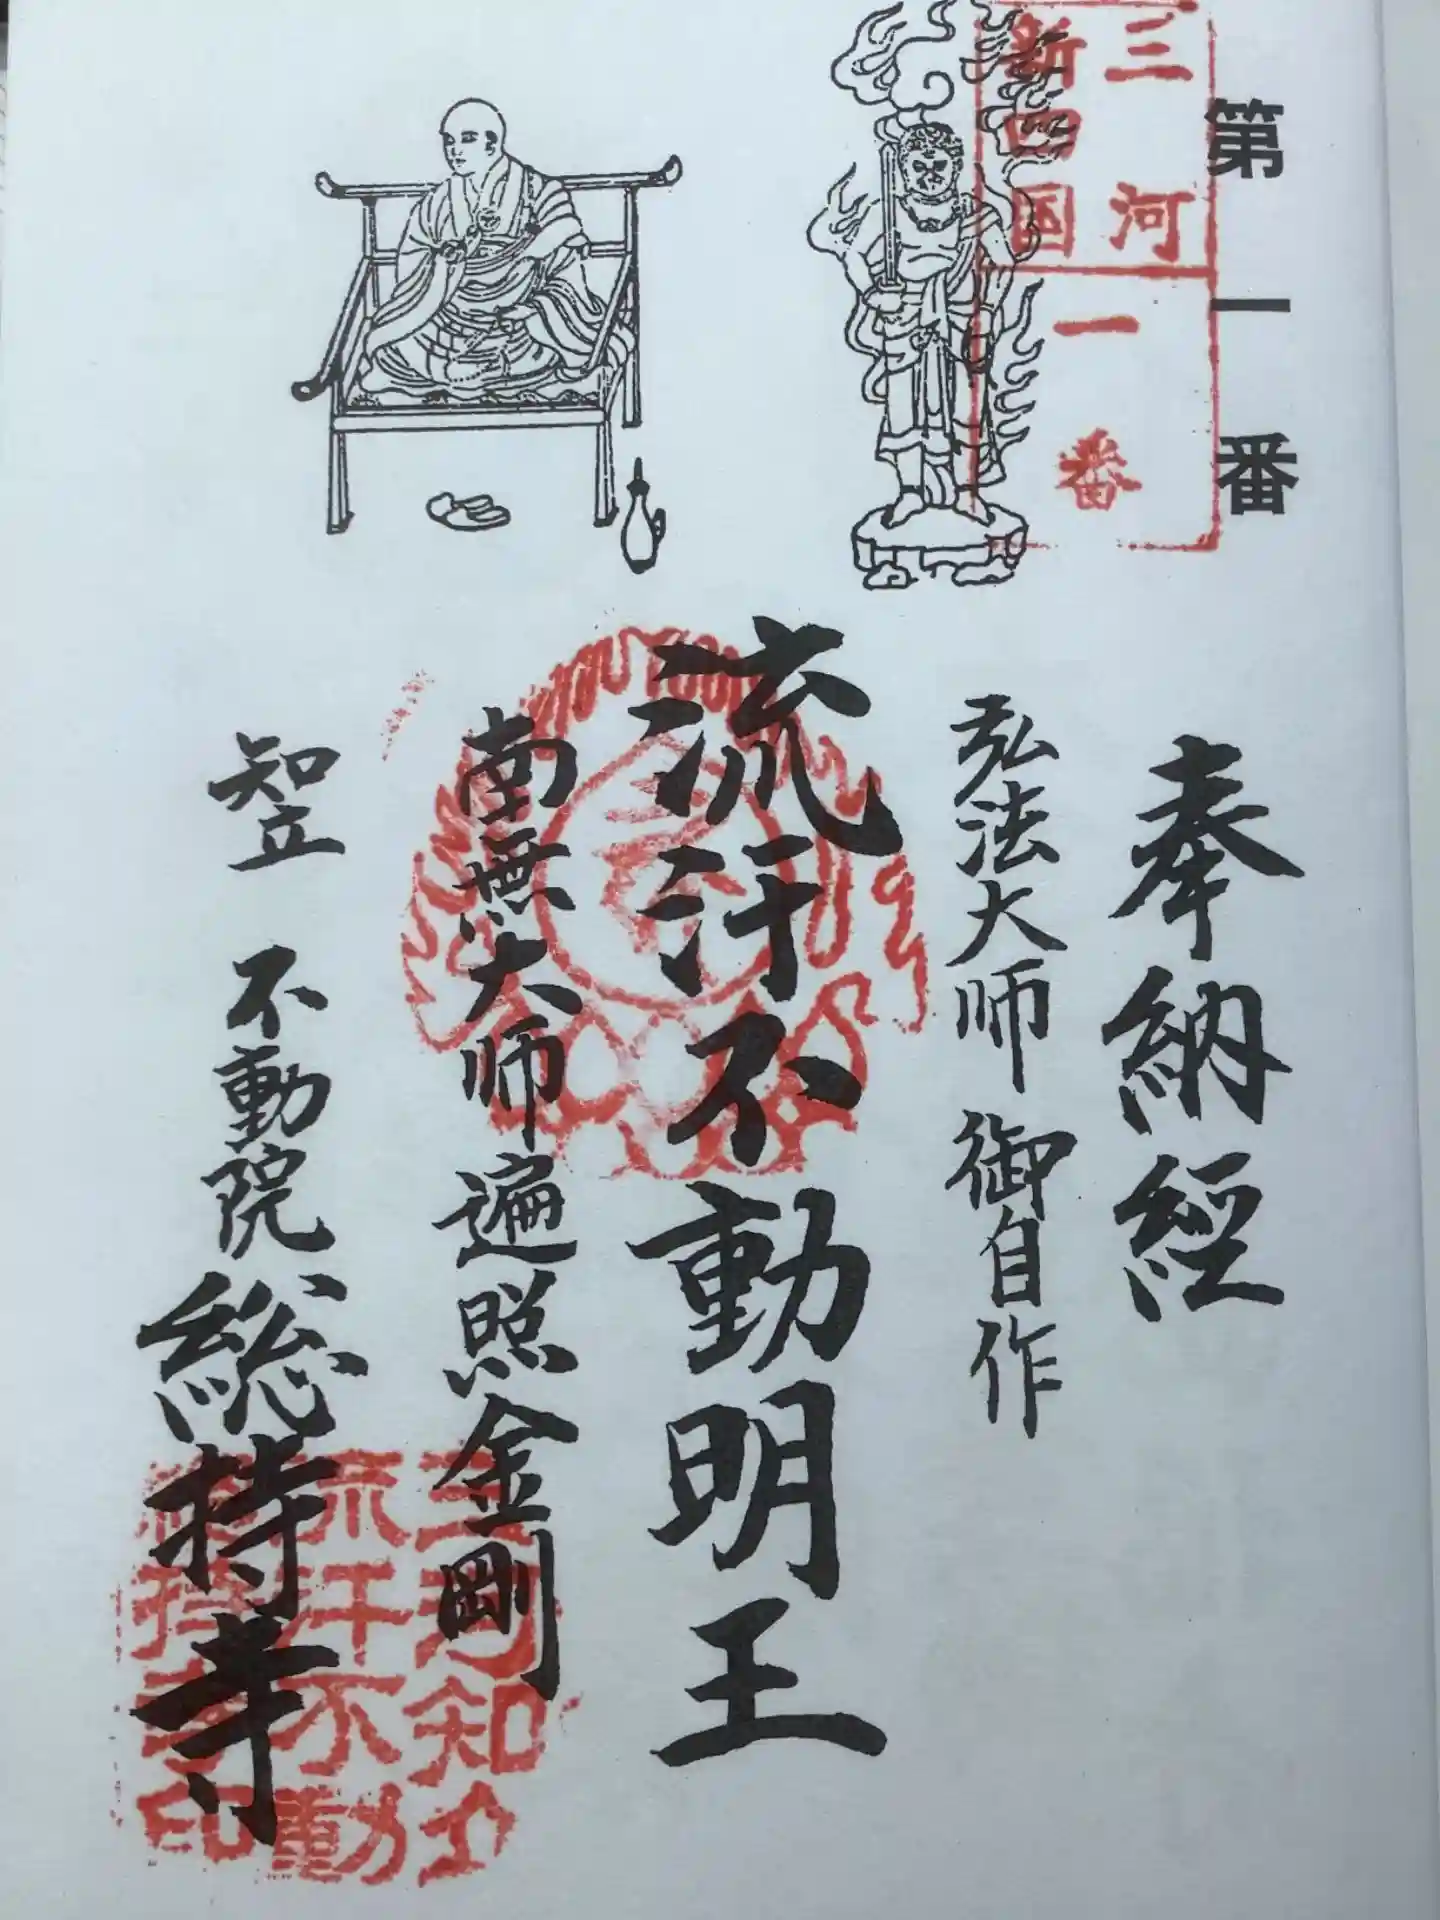 第一番
三河
新四国
一番
奉納経
弘法大師 御自作
流汗不動明王
南無大師遍照金剛
知立 不動院 総持寺
三河知立
流汗不動
総持寺印